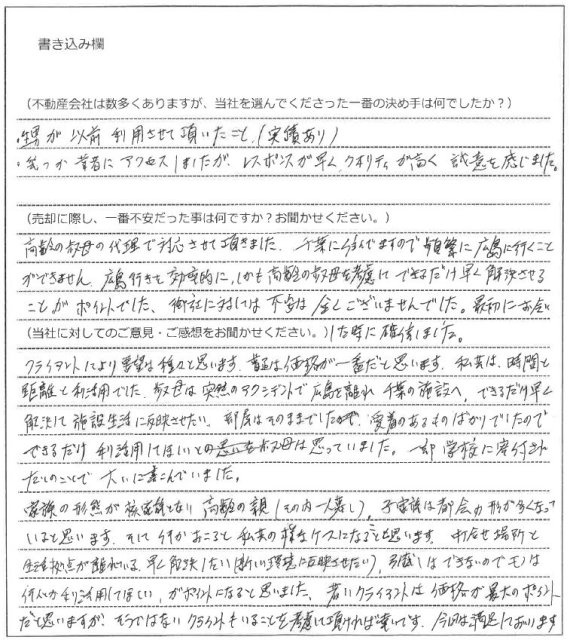 書き込み欄
（不動産会社は数多くありますが、当社を選んでくださった一番の決め手は何でしたか？）
・甥が以前利用させて頂いたこと。（実績あり）
・幾つか業者にアクセスしましたが、レスポンスが早く、クオリティが高く 誠意を感じました。
（売却に際し、一番不安だった事は何ですか？お聞かせください。）
高齢の叔母の代理で対応させて頂きました。千葉に住んでますので頻繁に広島に行くこと
ができません。広島行きを効率的に、しかも高齢の叔母を考慮してできるだけ早く解決させる
ことがポイントでした。御社に対しては不安は全くございませんでした。最初にお会い
（当社に対してのご意見・ご感想をお聞かせください。）した時に確信しました。
クライアントにより要望は種々と思います。普通は価格が一番だと思います。私共は、時間と
距離と利活用でした。叔母は突然のアクシデントで広島を離れ 千葉の施設へ。できるだけ早く
解決して施設生活に反映させたい。部屋はそのままでしたので、愛着のあるものばかりでしたので
できるだけ利活用してほしいとの叔母は思っていました。一部 学校に寄付された
とのことで 大いに喜んでいました。
家族の形態が核家族となり 高齢の親（その内一人暮し）、子家族は都会の形が多くなって
いると思います。そして何かおこると私共の様なケースになることと思います。打合せ場所と
生活拠点が離れている。早く解決したい（新しい環境に反映させたい）、引越しはできないのでモノは
何んとか利活用してほしい、がポイントになると思いました。若いクライアントは価格が最大のポイント
だと思いますが、そうではないクライアントもいることを考慮して頂ければ幸いです。今回は満足しております